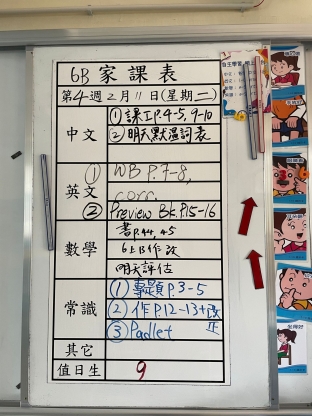 6B 家課表
第4週2月11日(星期二)
中文
①課工P.4-5, 9-10
②明天默溫詞表
英文
① WB P.7-8,
corr.
② Preview Bk.P.15-16
數學
書P.44, 45
明天評估
常識
①專題P.3-5
②作P.12-13+改正
③Padlet
其它
值日生
9